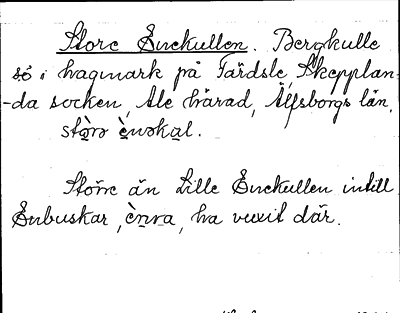 Store Enekullen. Bergkulle
sö i hagmark på Färdsle, Skepplan-
-da socken, Ale härad, Älfsborgs län,
Större än Lille Enekullen intill
Enbuskar, ha vuxit där.